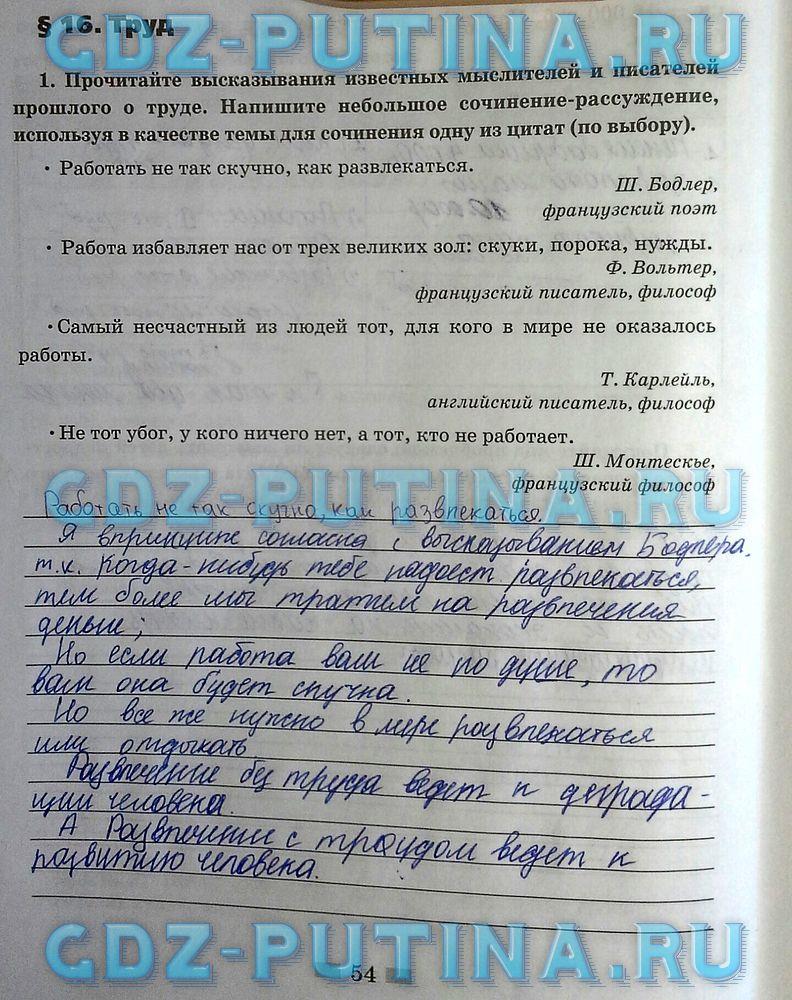 § 16. Труд
GDZ-PUTINA.RU
1. Прочитайте высказывания известных мыслителей и писателей
прошлого о труде. Напишите небольшое сочинение-рассуждение,
используя в качестве темы для сочинения одну из цитат (по выбору).
· Работать не так скучно, как развлекаться.
Ш. Бодлер,
французский поэт
· Работа избавляет нас от трех великих зол: скуки, порока, нужды.
Ф. Вольтер,
французский писатель, философ
· Самый несчастный из людей тот, для кого в мире не оказалось
работы.
Т. Карлейль,
английский писатель, философ
· Не тот убог, у кого ничего нет, а тот, кто не работает.
Ш. Монтескье,
французский философ
GDZ-PUTINA.RU
Работать не так скучно, как развлекаться.
Я впринципе согласна с высказыванием Бодлера.
т.к. когда-нибудь тебе надоест развлекаться,
тем более мы тратием на развлечения
деньги;
Но если работа вам не по душе, то
вам она будет скучна.
Но все же нужно в мере развлекаться
или отдыхать
Развлечение без труда ведет к деграда-
ции человека.
А Развлечение с траудом ведет к
развитию человека.
GDZ-PUTINA.RU
54